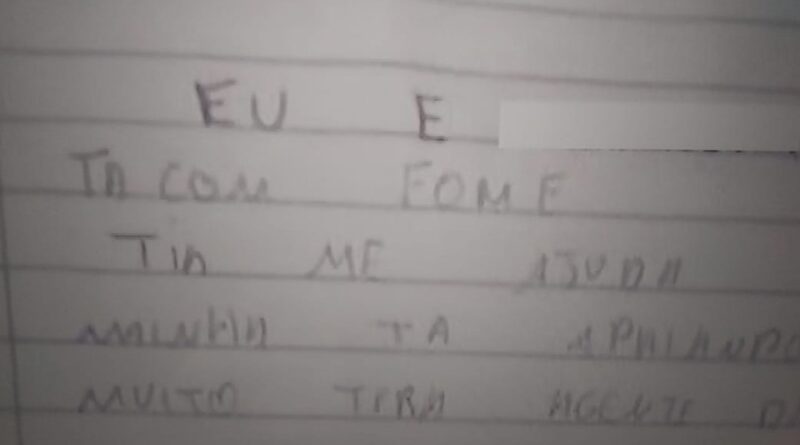 EU E
TA COM FOME
TIA ME AJUDA
MAINHA TA APAIANDO
MUITO TIRA AGENTE DA